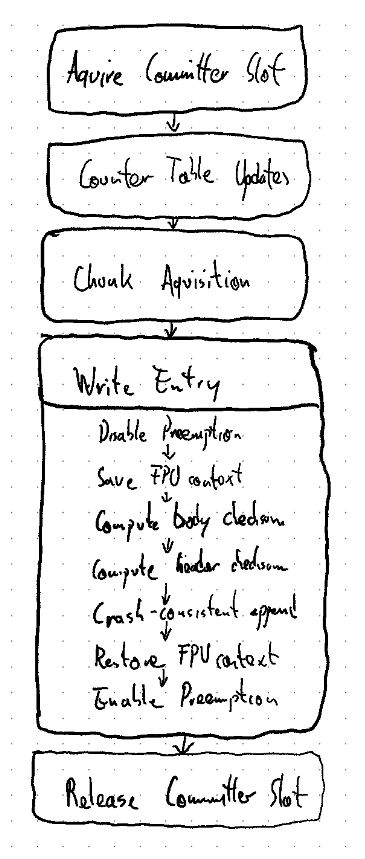 Aquire Committer Slot
Counter Table Updates
Chunk Aquisition
Write Entry
Disable Preemption
Save FPU context
Compute body checksum
Compute header checksum
Crash-consistent append
Restore FPU context
Enable Preemption
Release Committer Slot